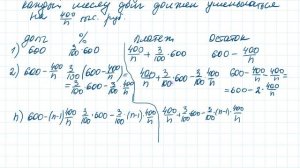 каждый месяц долг должен уменьшаться
на 400/n тыс. руб.
долг % платёж Остаток
1) 600 3/100·600 400/n + 3/100·600 600 − 400/n
2) 600 − 400/n 3/100(600 − 400/n) = 400/n + 3/100·600 − 3/100·400/n 600 − 400/n − 400/n =
= 3/100·600 − 3/100·400/n = 600 − 2·400/n
n) 600 − (n−1)400/n 3/100·600 − 3/100·(n−1)·400/n 400/n + 3/100·600 − 3/100·(n−1)·400/n